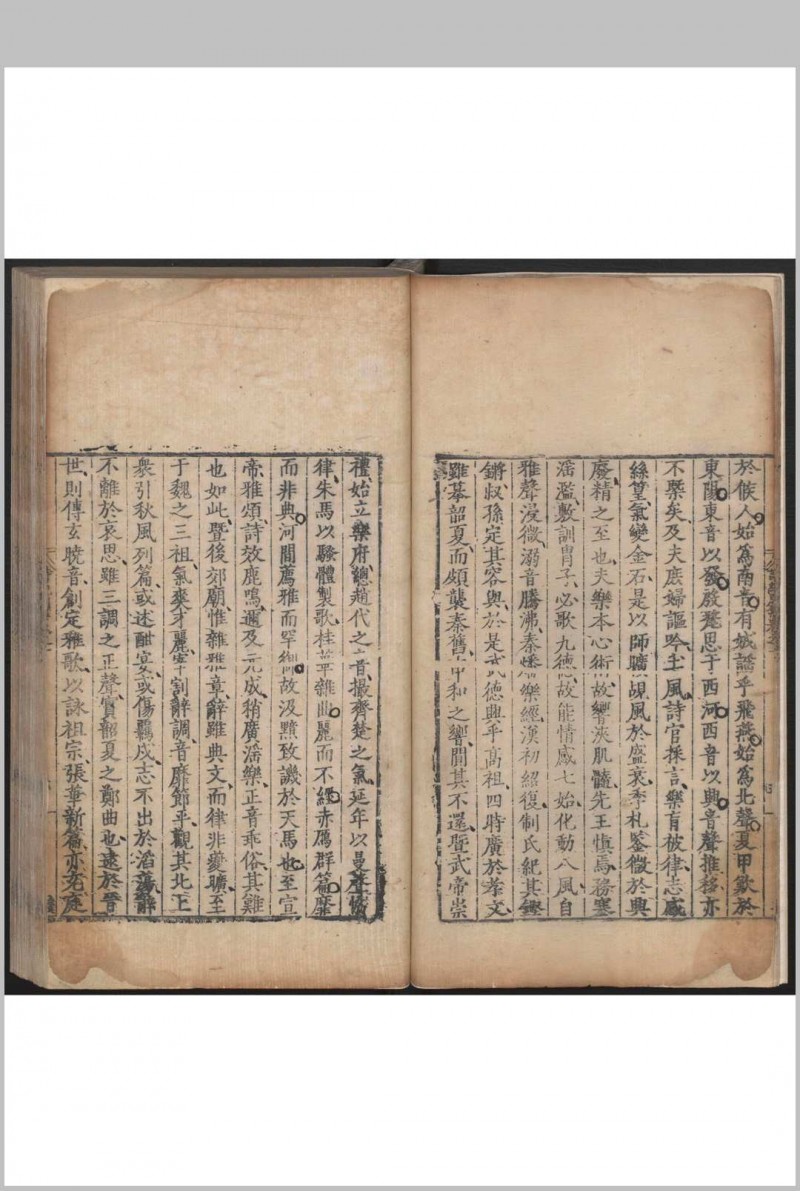 於候人始為南音有娀謡乎飛燕始為北聲夏甲歎於
東陽東音以發殷𨤲思于西河西音以興音聲推移亦
不槩矣及夫庶婦謳吟土風詩官採言樂育被律志感
絲篁氣變金石是以師曠覘風於盛衰季札鑒微於興
廢精之至也夫樂本心術故響浹肌髓先王慎焉務塞
滛濫敷訓胄子必歌九德故能情感七始化動八風自
雅聲浸微溺音騰沸秦燔樂經漢初紹復制氏紀其鏗
鏘叔孫定其容與於是武德興乎高祖四時廣於孝文
雖摹韶夏而頗襲秦舊中和之響闃其不還暨武帝崇
禮始立樂府總趙代之音撮齊楚之氣延年以曼聲恊
律朱馬以騷體製歌桂華雜曲麗而不經赤鴈群篇靡
而非典河間薦雅而罕御故汲黯致譏於天馬也至宣
帝雅頌詩效鹿鳴邇及元成稍廣滛樂正音乖俗其難
也如此暨後郊廟惟雜雅章辭雖典文而律非夔曠至
于魏之三祖氣爽才麗宰割辭調音靡節平觀其北上
衆引秋風列篇或述酣宴或傷羈戍志不出於滔蕩辭
不離於哀思雖三調之正聲實韶夏之鄭曲也逮於晉
世則傅玄曉音創定雅歌以詠祖宗張華新篇亦充庭